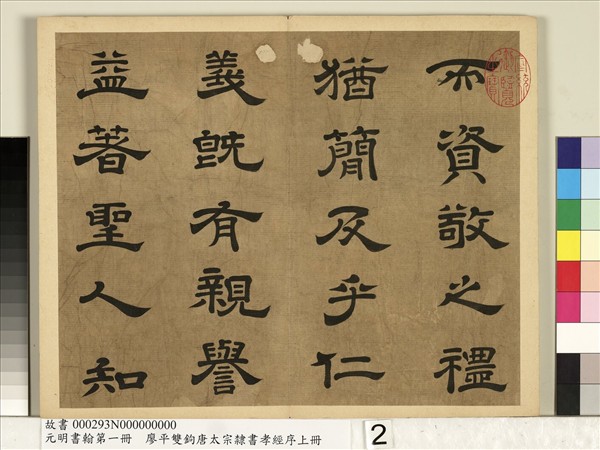 而資敬之禮
猶簡及乎仁
義既有親譽
益著聖人知
故書 000293N000000000
元明書翰第一冊　廖平雙鉤唐太宗隸書孝經序上冊
2